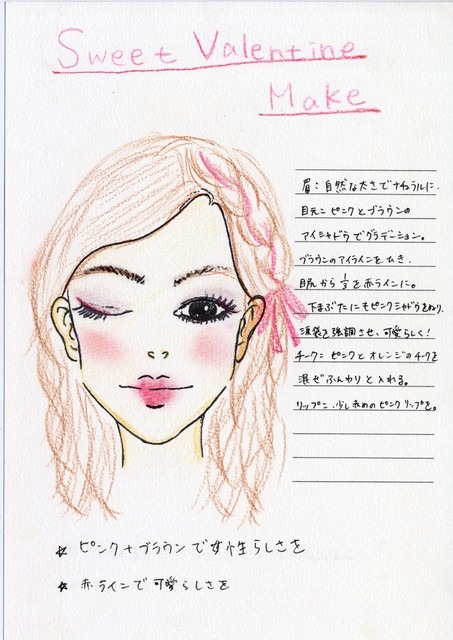 Sweet Valentine
Make
眉：自然な太さでナチュラルに.
目元：ピンクとブラウンの
アイシャドウでグラデーション。
ブラウンのアイラインをひき.
目尻から1/3を赤ラインに。
下まぶたにもピンクシャドウをぬり.
涙袋を強調させ、可愛らしく!
チーク：ピンクとオレンジのチークを
混ぜふんわりと入れる。
リップ：少し赤めのピンクリップを。
☆ ピンク+ブラウンで女性らしさを
☆ 赤ラインで可愛らしさを